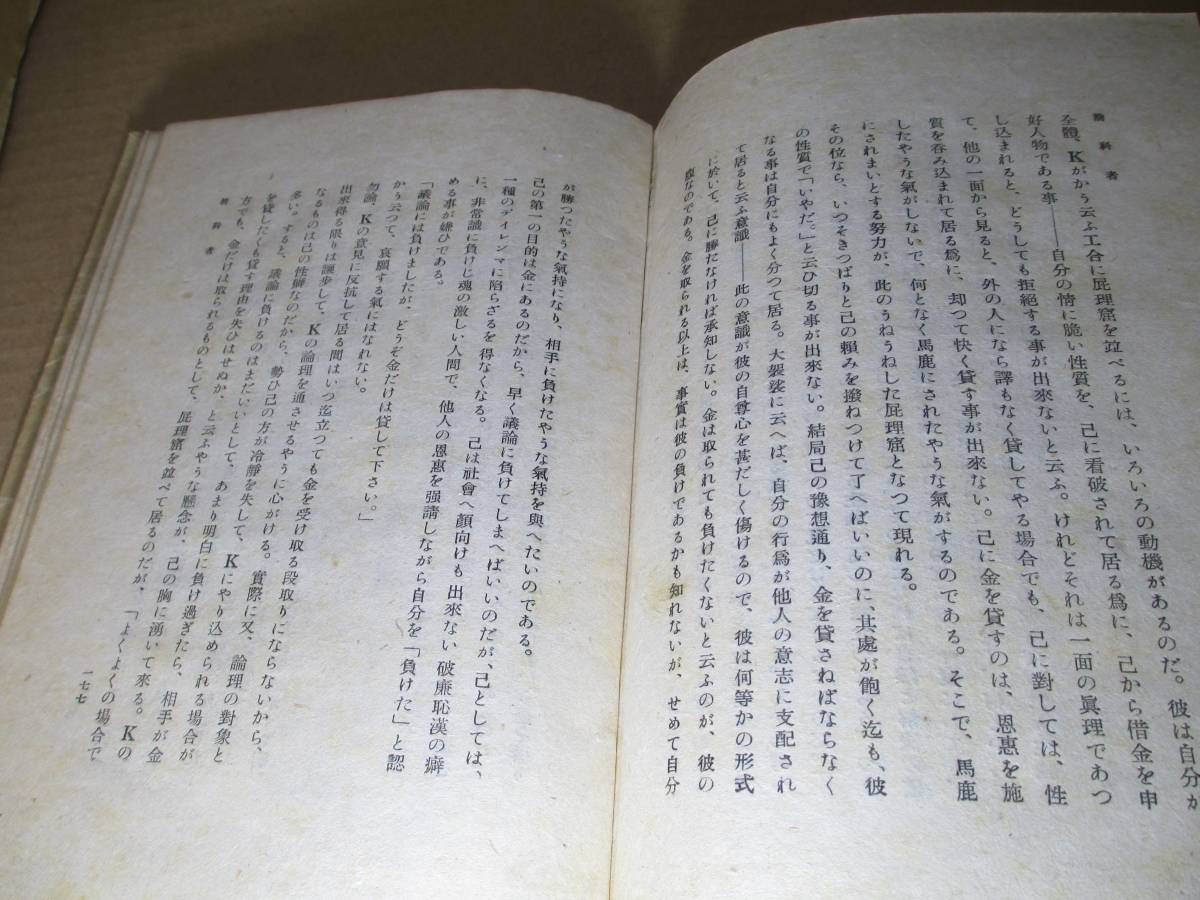 前科者
全體、Kがかう云ふ工合に屁理窟を竝べるには、いろいろの動機があるのだ。彼は自分が
好人物である事――自分の情に脆い性質を、己に看破されて居る爲に、己から借金を申
し込まれると、どうしても拒絕する事が出來ないと云ふ。けれどそれは一面の眞理であつ
て、他の一面から見ると、外の人になら譯もなく貸してやる場合でも、己に對しては、性
質を呑み込まれて居る爲に、却つて快く貸す事が出來ない。己に金を貸すのは、恩惠を施
したやうな氣がしないで、何となく馬鹿にされたやうな氣がするのである。そこで、馬鹿
にされまいとする努力が、此のうねうねした屁理窟となつて現れる。
その位なら、いつそきつぱりと己の賴みを撥ねつけて了へばいいのに、其處が飽く迄も、彼
の性質で「いやだ。」と云ひ切る事が出來ない。結局己の豫想通り、金を貸さねばならなく
なる事は自分にもよく分つて居る。大袈裟に云へば、自分の行爲が他人の意志に支配され
て居ると云ふ意識――此の意識が彼の自尊心を甚だしく傷けるので、彼は何等かの形式
に於いて、己に勝たなければ承知しない。金は取られても負けたくないと云ふのが、彼の
腹なのである。金を取られる以上は、事實は彼の負けであるかも知れないが、せめて自分
が勝つたやうな氣持になり、相手に負けたやうな氣持を與へたいのである。
己の第一の目的は金にあるのだから、早く議論に負けてしまへばいいのだが、己としては、
一種のディレンマに陷らざるを得なくなる。己は社會へ顏向けも出來ない破廉恥漢の癖
に、非常識に負けじ魂の激しい人間で、他人の恩惠を强請しながら自分を「負けた」と認
める事が嫌ひである。
「議論には負けましたが、どうぞ金だけは貸して下さい。」
かう云つて、哀願する氣にはなれない。
勿論、Kの意見に反抗して居る間はいつ迄立つても金を受け取る段取りにならないから、
出來得る限りは讓步して、Kの論理を通させるやうに心がける。實際に又、論理の對象と
なるものは己の性癖なのだから、勢ひ己の方が冷靜を失して、Kにやり込められる場合が
多い。すると、議論に負けるのはまだいいとして、あまり明白に負け過ぎたら、相手が金
を貸したくも貸す理由を失ひはせぬか、と云ふやうな懸念が、己の胸に湧いて來る。Kの
方でも、金だけは取られるものとして、屁理窟を竝べて居るのだが、「よくよくの場合で
前科者
一七七